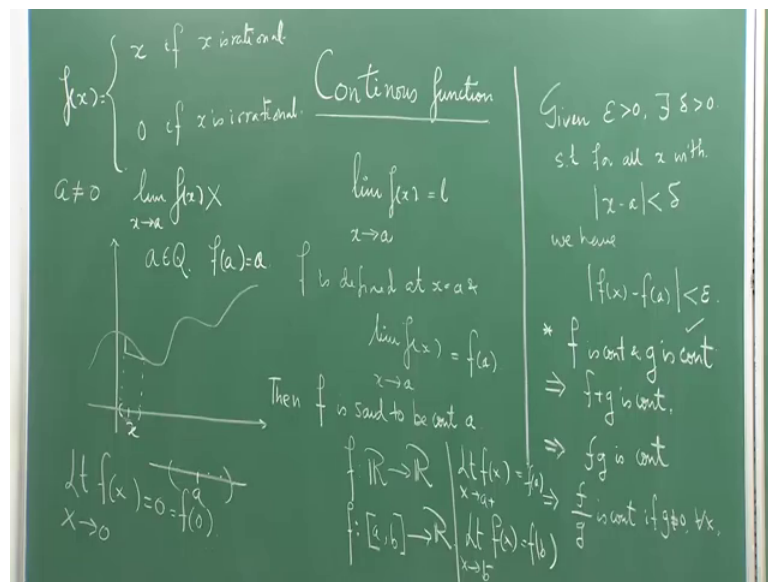 f(x) = { x if x is rational.
0 if x is irrational.
a ≠ 0 lim f(x) X
x→a
a ∈ Q. f(a) = a
x
a
Lt f(x) = 0 = f(0)
x→0
Continous function
lim f(x) = l
x→a
f is defined at x = a &
lim f(x) = f(a)
x→a
Then f is said to be cont a.
f: ℝ → ℝ
f: [a, b] → ℝ
Lt f(x) = f(a)
x→a+
Lt f(x) = f(b)
x→b-
Given ε > 0, ∃ δ > 0.
s.t for all x with.
|x - a| < δ
we have
|f(x) - f(a)| < ε.
* f is cont & g is cont ✓
⇒ f+g is cont,
⇒ fg is cont
⇒ f/g is cont if g ≠ 0, ∀x,